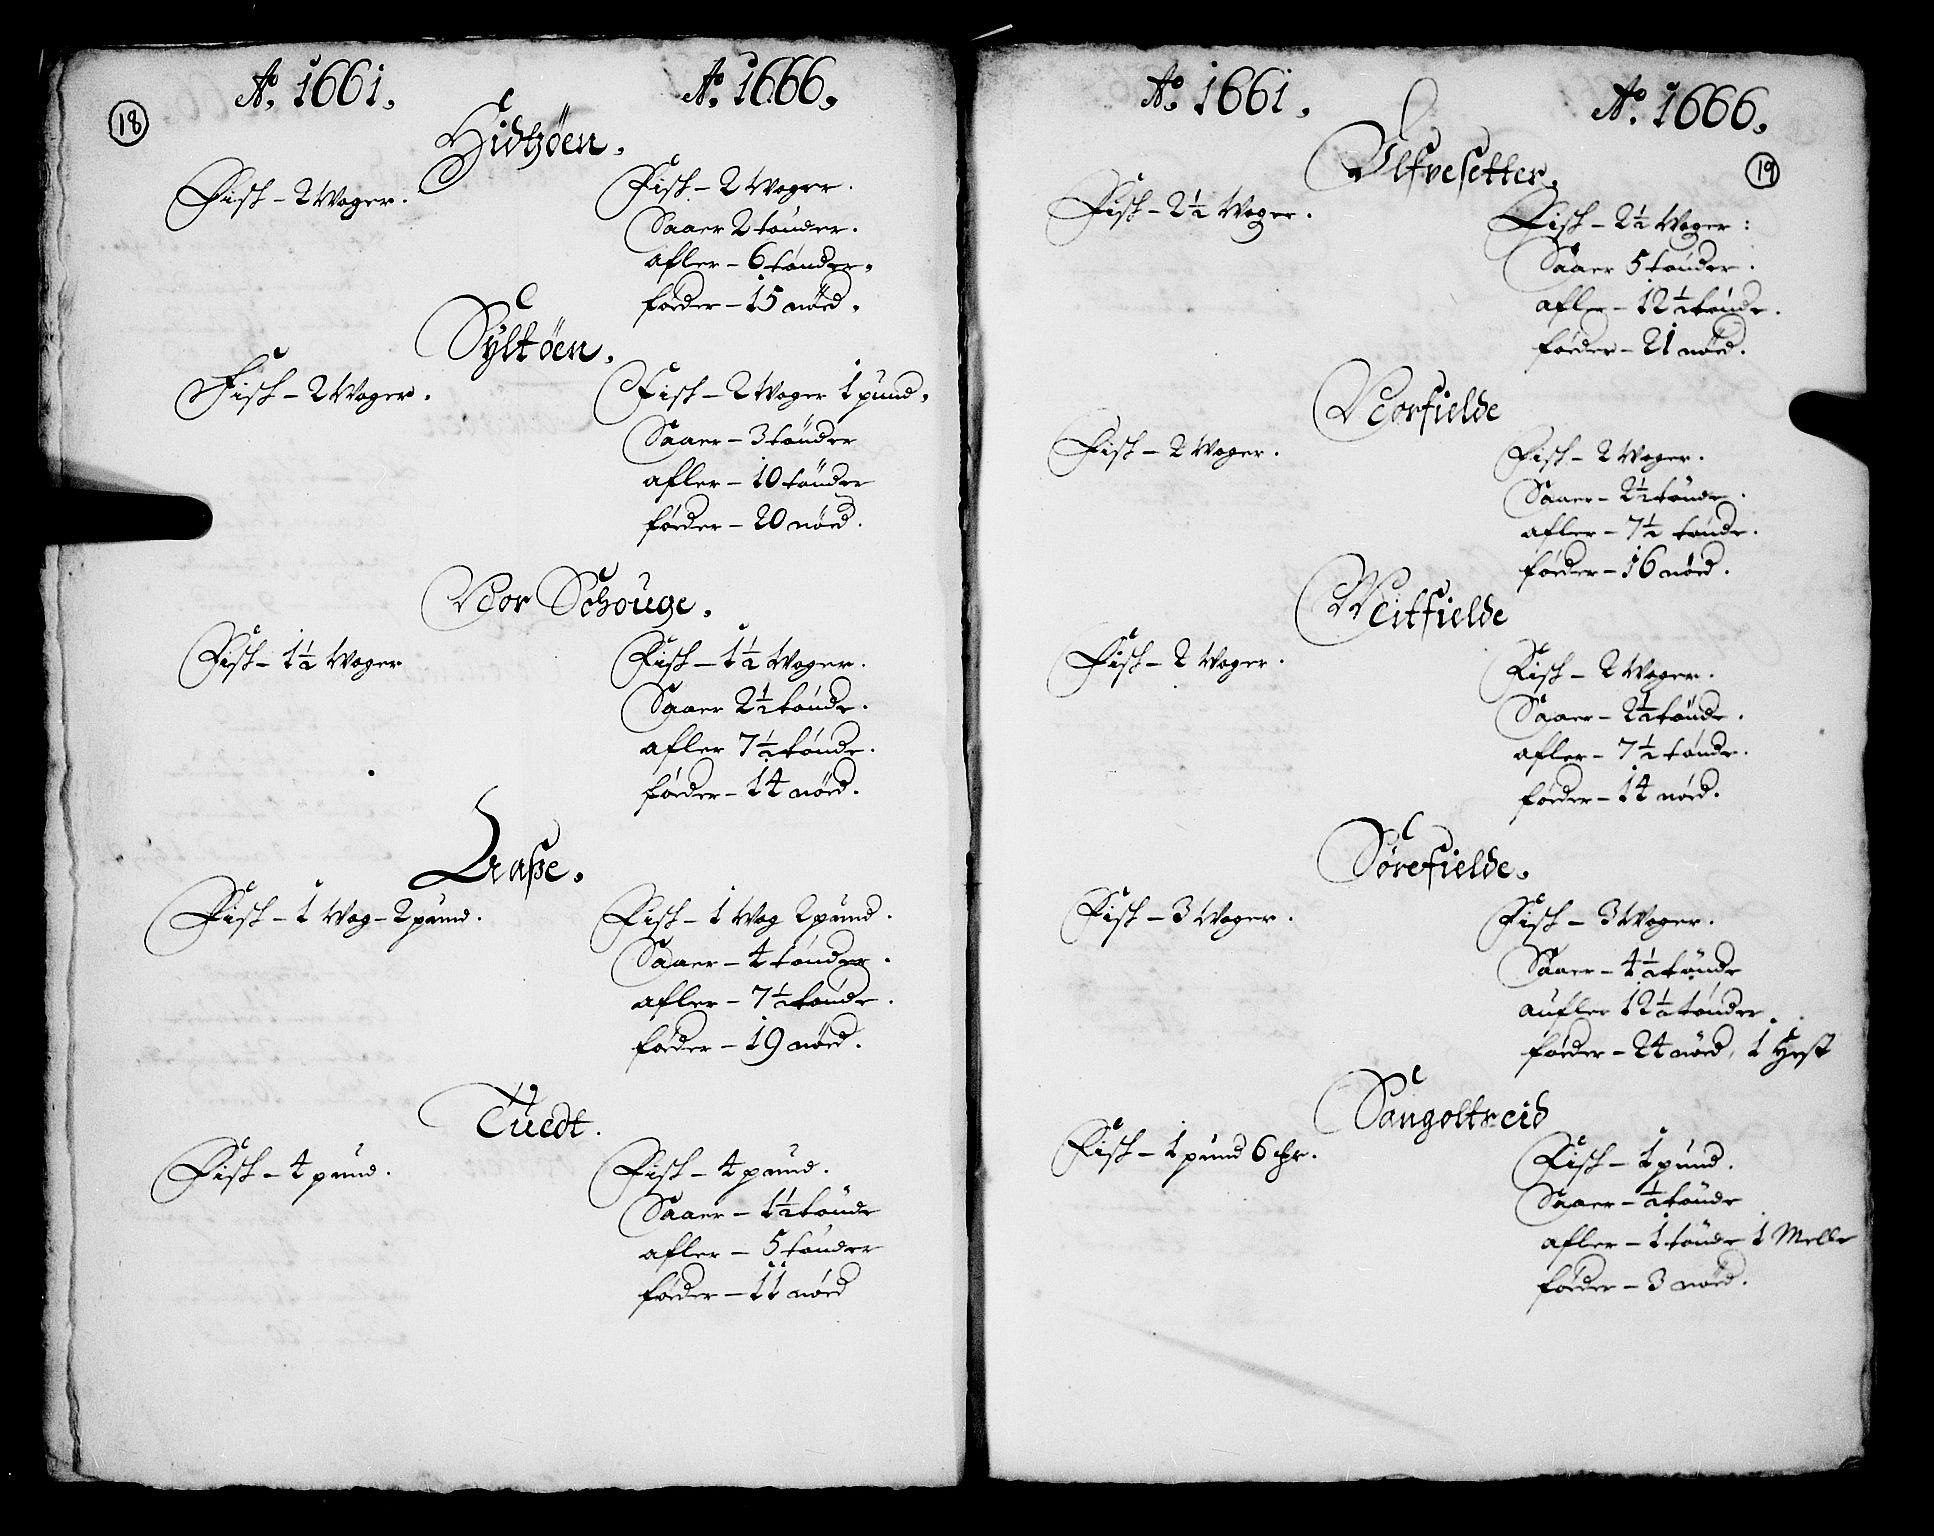 18
Ao. 1661.
Ao. 1666.
Hidtzöen.
Fisk - 2 Woger.
Fisk - 2 Woger.
Saaer 2 tönder.
afler - 6 tönder.
föeder - 15 nöed.
Syltöen.
Fisk - 2 Woger.
Fisk - 2 Woger 1 pund.
Saaer - 3 tönder
afler - 10 tönder
föeder - 20 nöed.
Schouge.
Fisk - 1½ Woger
Fisk - 1½ Woger.
Saaer 2½ tönde.
afler 7½ tönde.
föeder - 14 nöed.
Aaße.
Fisk - 1 Wog - 2 pund.
Fisk - 1 Wog 2 pund.
Saaer - 4 tönder.
afler - 7½ tönde.
föeder - 19 nöed.
Tuedt.
Fisk - 4 pund.
Fisk - 4 pund.
Saaer - 1½ tönde
afler - 5 tönder
föeder - 11 nöed
Ao. 1661.
Ao. 1666.
19
Elfvesetter.
Fisk - 2½ Woger.
Fisk - 2½ Woger:
Saaer 5 tönder.
afler - 12½ tönde.
föeder - 21 nöed.
Norfielde
Fisk - 2 Woger.
Fisk - 2 Woger.
Saaer - 2½ tönde.
afler - 7½ tönde.
föeder - 16 nöed.
Meitfielde
Fisk - 2 Woger.
Fisk - 2 Woger.
Saaer - 2½ tönde.
afler - 7½ tönde.
föeder - 14 nöed.
Sörefielde.
Fisk - 3 Woger.
Fisk - 3 Woger.
Saaer - 4½ tönde
aufler 12½ tönder.
föeder - 24 nöed, 1 Hest
Sangoltreid
Fisk - 1 pund 6
Fisk - 1 pund.
Saaer - ½ tönde
afler - 1 tönde 1 Melle
föeder - 3 nöed.